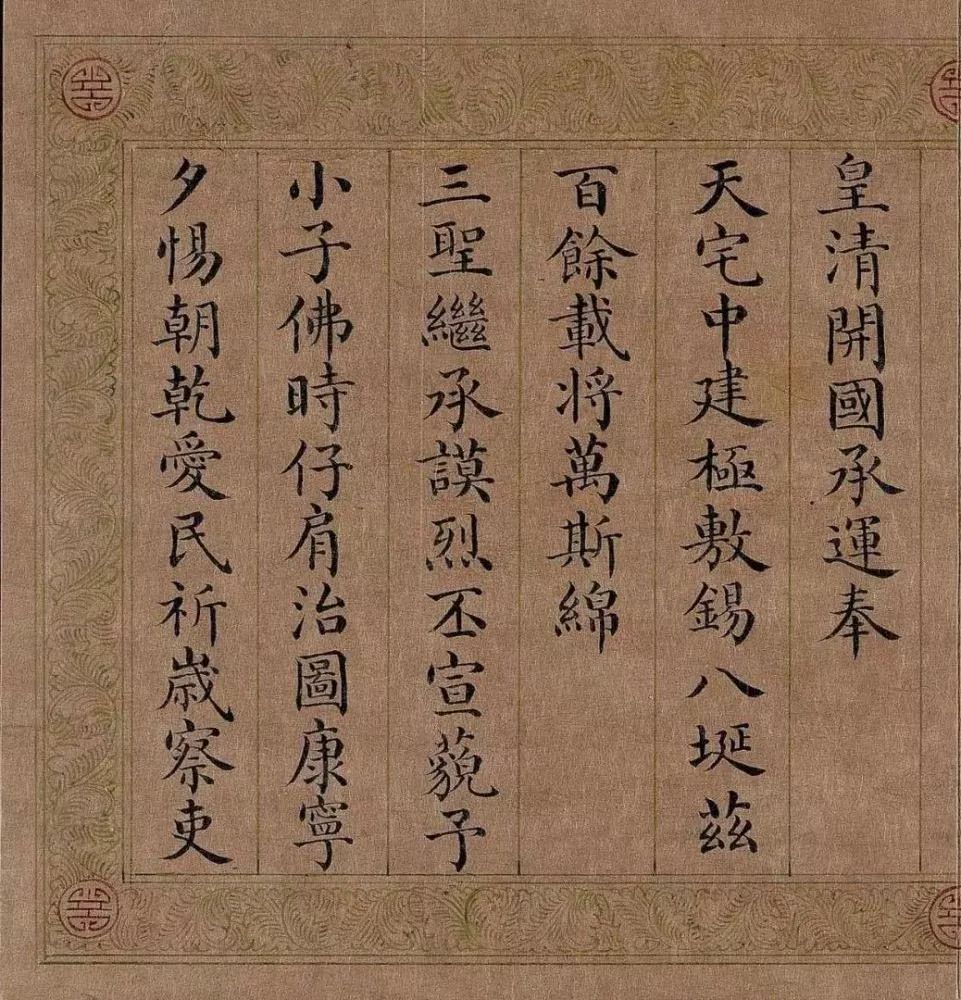 皇清開國承運奉
天宅中建極敷錫八埏茲
百餘載将萬斯綿
三聖繼承謨烈丕宣藐予
小子佛時仔肩治圖康寧
夕惕朝乾愛民祈歲察吏